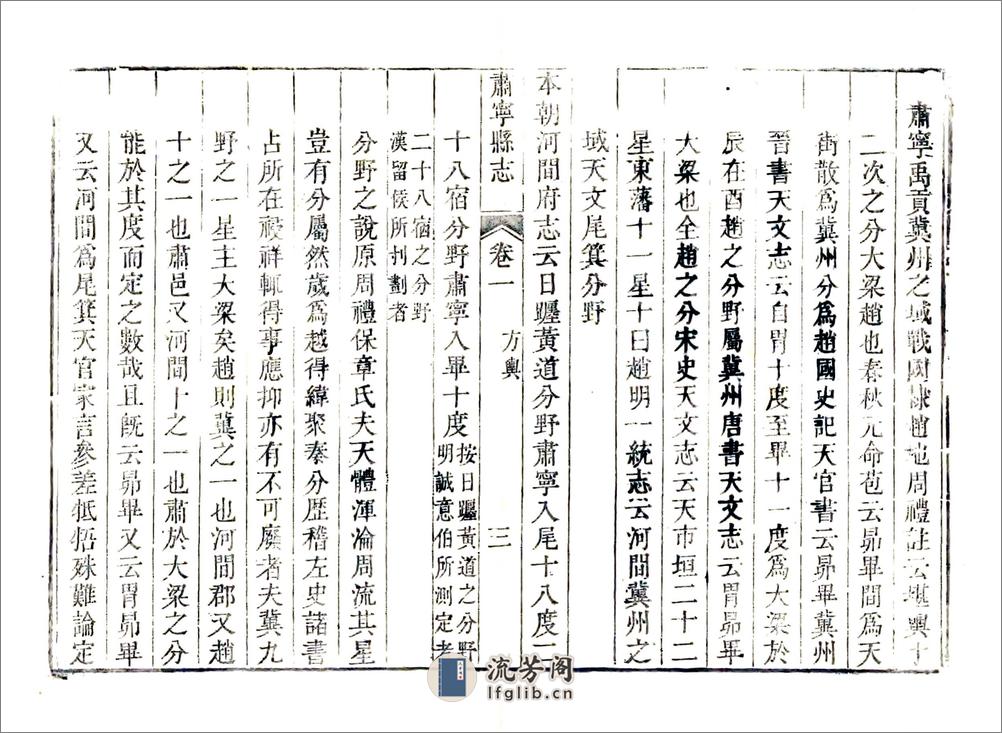 肅寧禹貢冀州之域戰國隸趙地周禮註云堪輿十
二次之分大梁趙也春秋元命苞云昴畢間爲天
街散爲冀州分爲趙國史記天官書云昴畢冀州
晉書天文志云自胃十度至畢十一度爲大梁於
辰在酉趙之分野屬冀州唐書天文志云胃昴畢
大梁也全趙之分宋史天文志云天市垣二十二
星東藩十一星十曰趙明一統志云河間冀州之
域天文尾箕分野
本朝河間府志云日躔黃道分野肅寧入尾十八度二
肅寧縣志 卷一 方輿 三
十八宿分野肅寧入畢十度按日躔黃道之分野
明誠意伯所測定者
二十八宿之分野
漢留侯所刊劃者
分野之說原周禮保章氏夫天體渾淪周流其星
豈有分屬然歲爲越得緯聚秦分歷稽左史諸書
占所在祲祥輒得事應抑亦有不可廢者夫冀九
野之一星主大梁矣趙則冀之一也河間郡又趙
十之一也肅邑又河間十之一也肅於大梁之分
能於其度而定之數哉且旣云昴畢又云胃昴畢
又云河間爲尾箕天官家言參差牴牾殊難論定
流芳阁
lfglib.cn